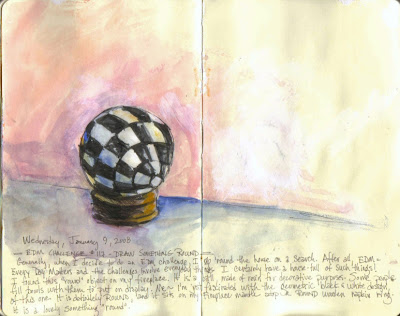 Wednesday, January 9, 2008
EDM CHALLENGE #112 - DRAW SOMETHING ROUND
Generally, when I decide to do an EDM challenge, I go 'round the house on a search. After all, EDM =
Every Day Matters and the challenges involve everyday things. I certainly have a house-full of such things!
I found this "round" object on my fireplace. It is a ball made of for decorative purposes. Some people
fill bowls with them to put on display. Me - I'm fascinated with the geometric black & white design
of this one. It is definitely ROUND, and it sits on my fireplace mantle atop a ROUND wooden napkin ring.
It is a lovely something "round".